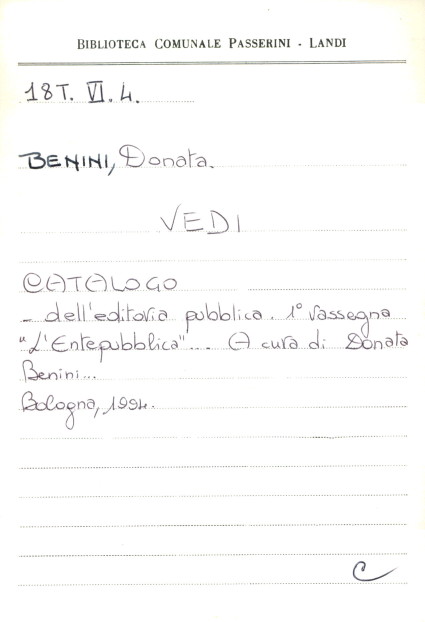 BIBLIOTECA COMUNALE PASSERINI - LANDI
18T. VI. 4.
BENINI, Donata.
VEDI
CATALOGO
- dell'editoria pubblica. 1° rassegna
"L'Entepubblica"... A cura di Donata
Benini...
Bologna, 1994.
C